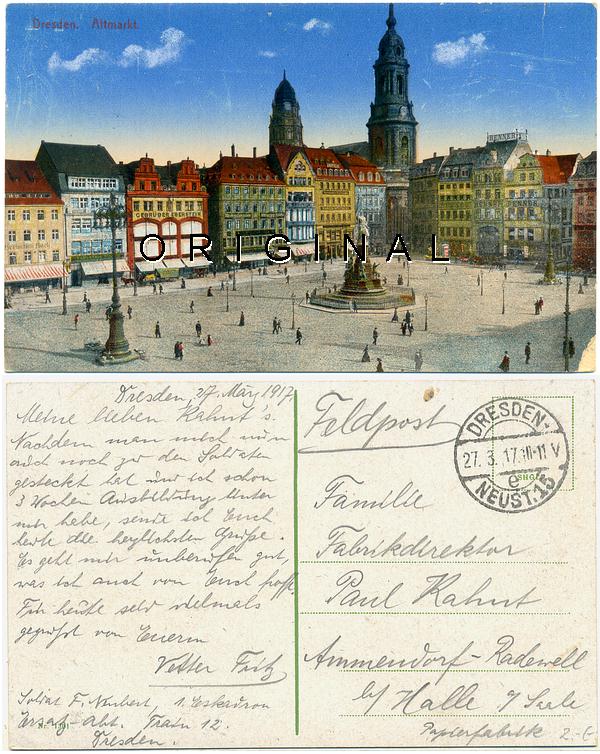 Dresden. Altmarkt.
RENNER
GEBRÜDER EBERSTEIN
ORIGINAL
Dresden, 27. März 1917.
Meine lieben Kahnt's.
Nachdem man mich nun
auch noch zu den Soldaten
gesteckt hat und ich schon
3 Wochen Ausbildung hinter
mir habe, sende ich Euch
heute die herzlichsten Grüße.
Es geht mir unberufen gut,
was ich auch von Euch hoffe.
Für heute seid vielmals
gegrüßt von Euerm
Vetter Fritz
Soldat F. Neubert, 1. Eskadron
Ersatz-Abt. Train 12.
Dresden.
Feldpost
DRESDEN-
27. 3. 17. 10-11 V
e
NEUST. 15
Familie
Fabrikdirektor
Paul Kahnt
Ammendorf-Radewell
b/ Halle a/ Saale
Papierfabrik
2.-E